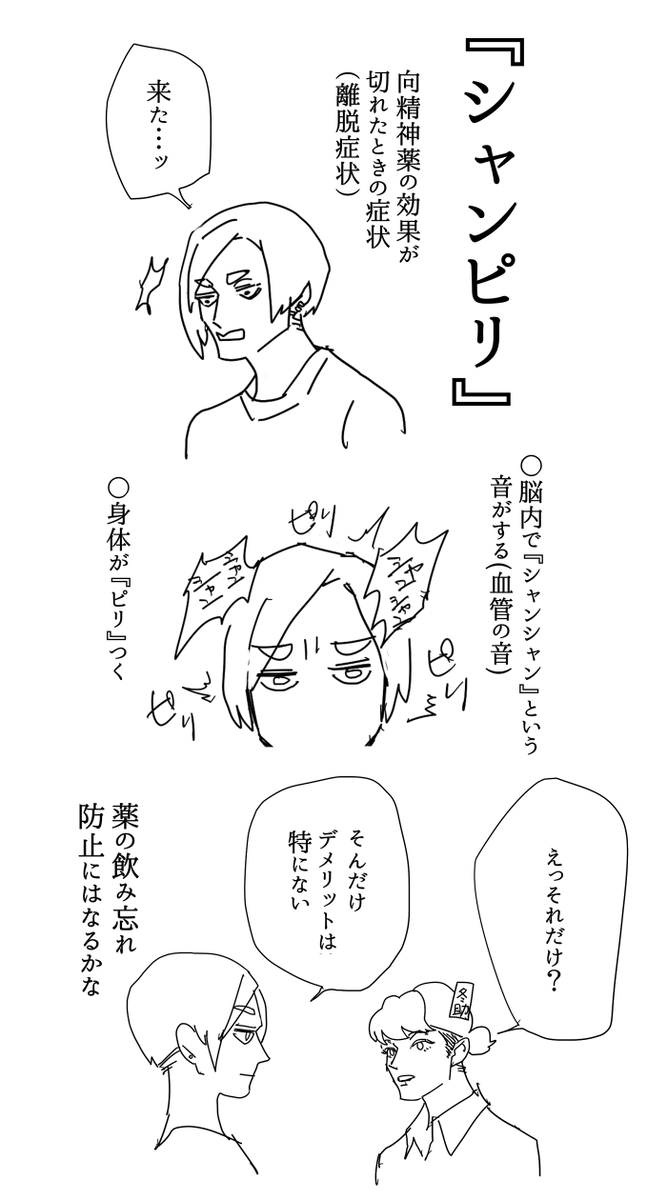 『シャンピリ』
向精神薬の効果が
切れたときの症状
(離脱症状)
来た…ッ
○脳内で『シャンシャン』という
音がする(血管の音)
ピリ
シャン
シャン
シャン
シャン
ピリ
ピリ
○身体が『ピリ』つく
えっそれだけ?
冬助
そんだけ
デメリットは
特にない
薬の飲み忘れ
防止にはなるかな